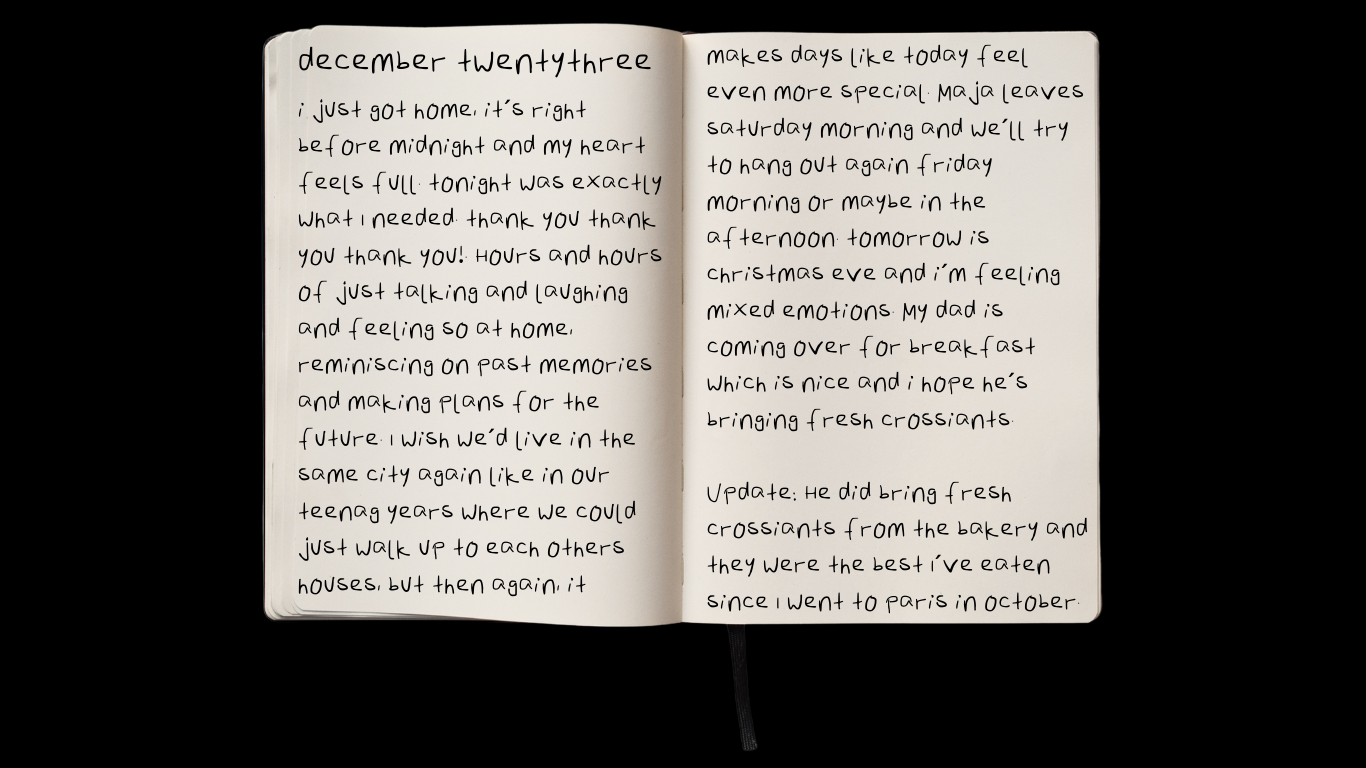 december twentythree
i just got home, it's right
before midnight and my heart
feels full. tonight was exactly
what i needed. thank you thank
you thank you!. Hours and hours
of just talking and laughing
and feeling so at home,
reminiscing on past memories
and making plans for the
future. i wish we'd live in the
same city again like in our
teenag years where we could
just walk up to each others
houses, but then again, it
makes days like today feel
even more special. Maja leaves
saturday morning and we'll try
to hang out again friday
morning or maybe in the
afternoon. tomorrow is
christmas eve and i'm feeling
mixed emotions. My dad is
coming over for breakfast
which is nice and i hope he's
bringing fresh crossiants.
Update: He did bring fresh
crossiants from the bakery and
they were the best i've eaten
since i went to paris in october.